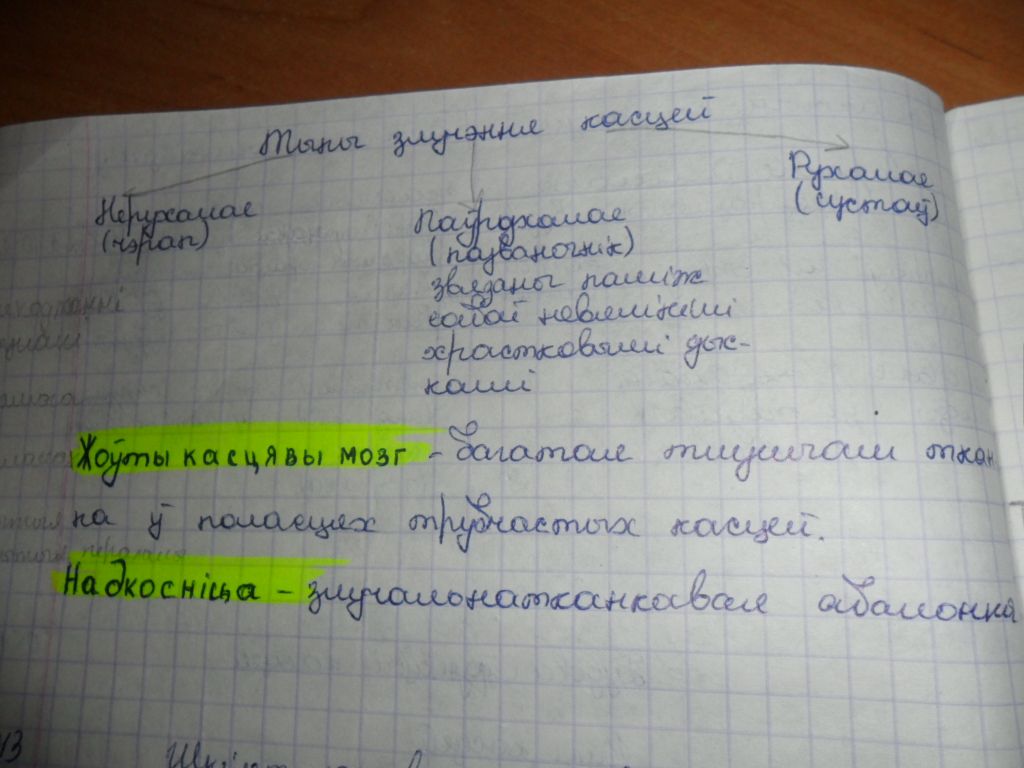 Тыпы злучэнне касцей
Нерухомае
(чэрап)
Паўрухомае
(пазваночнік)
звязаны паміж
сабой невялікімі
храстковымі дыс-
камі
Рухомае
(сустаў)
Жоўты касцявы мозг - багатая тлушчам ткан
на ў поласцях трубчастых касцей.
Надкосніца - злучальнатканкавая абалонка